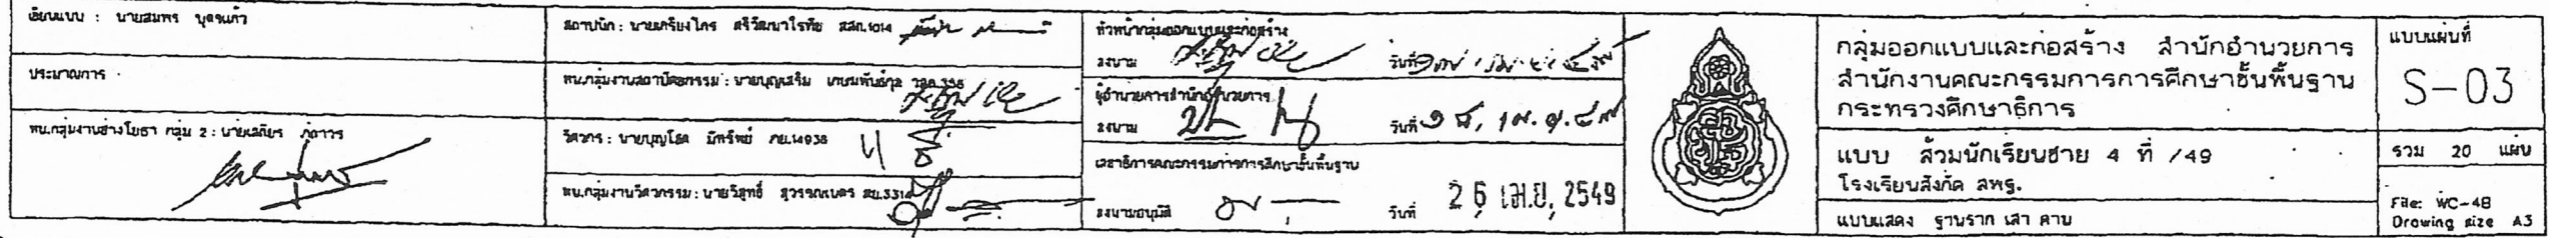 เขียนแบบ : นายสมพร บุตรแก้ว
ประมาณการ
หน.กลุ่มงานช่างโยธา กลุ่ม 2 : นายเสถียร
สถาปนิก : นายเกรียงไกร ศรีวัฒนาโรทัย สสถ.1014
หน.กลุ่มงานสถาปัตยกรรม : นายบุญเสริม เกษมพันธ์กุล วสถ.356
วิศวกร : นายบุญโชค มีทรัพย์ ภย.14936
หน.กลุ่มงานวิศวกรรม : นายวิสุทธิ์ สุวรรณเนตร สย.3314
หัวหน้ากลุ่มออกแบบและก่อสร้าง
ลงนาม วันที่
ผู้อำนวยการสำนักอำนวยการ
ลงนาม วันที่
เลขาธิการคณะกรรมการการศึกษาขั้นพื้นฐาน
ลงนามอนุมัติ วันที่ 26 เม.ย. 2549
กลุ่มออกแบบและก่อสร้าง สำนักอำนวยการ
สำนักงานคณะกรรมการการศึกษาขั้นพื้นฐาน
กระทรวงศึกษาธิการ
แบบ ส้วมนักเรียนชาย 4 ที่ /49
โรงเรียนสังกัด สพฐ.
แบบแสดง ฐานราก เสา คาน
แบบแผ่นที่
S-03
รวม 20 แผ่น
File: WC-48
Drawing size A3